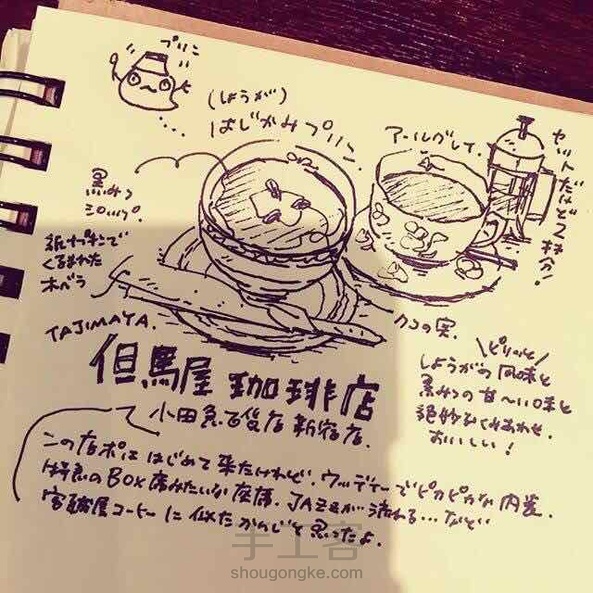 プリン
(しょうが)
はじかみプリン
アールグレイ.
セットだけど2杯分!
黒みつ
シロップ.
紙ナプキンで
くるまれた
木ベラ
クコの実.
TAJIMAYA.
但馬屋 珈琲店
小田急百貨店 新宿店.
ピリッと
しょうがの風味と
黒みつの甘〜い味と
絶妙なくみあわせ.
おいしい!
この店ポは はじめて 来たけれど. ウッディーで ピカピカな 内装.
のBOX席みたいな 座席. JAZZが流れる... など
コーヒーに 似た かんじと 思ったよ.
手工客
shougongke.com